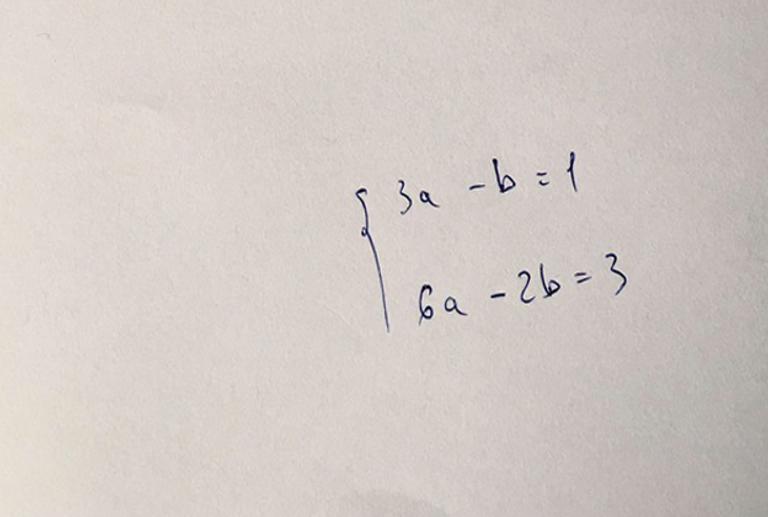 3a - b = 1
6a - 2b = 3